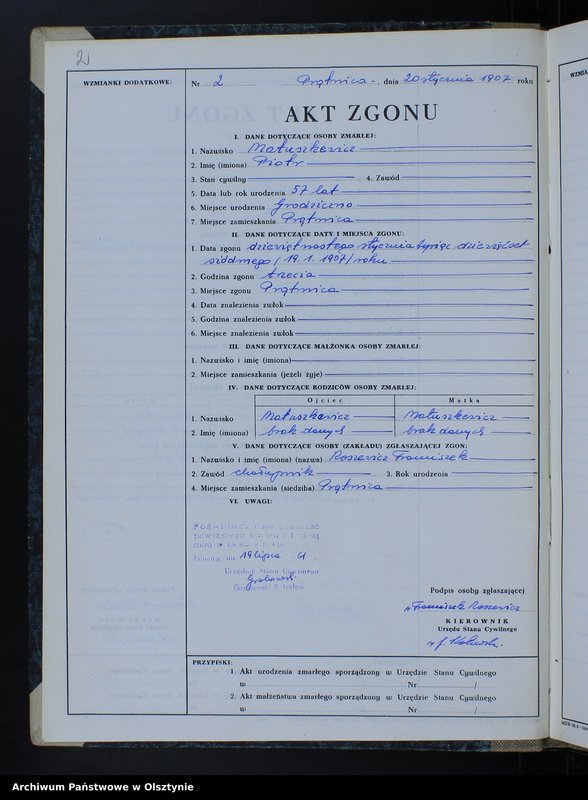 2
WZMIANKI DODATKOWE:
Nr 2 Prątnica -, dnia 20 stycznia 1907 roku
AKT ZGONU
I. DANE DOTYCZĄCE OSOBY ZMARŁEJ:
1. Nazwisko Matuszkewicz
2. Imię (imiona) Piotr
3. Stan cywilny 4. Zawód
5. Data lub rok urodzenia 57 lat
6. Miejsce urodzenia Grodziczno
7. Miejsce zamieszkania Prątnica
II. DANE DOTYCZĄCE DATY I MIEJSCA ZGONU:
1. Data zgonu dziewiętnastego stycznia tysiąc dziewięćset
siódmego / 19. 1. 1907/ roku
2. Godzina zgonu trzecia
3. Miejsce zgonu Prątnica
4. Data znalezienia zwłok
5. Godzina znalezienia zwłok
6. Miejsce znalezienia zwłok
III. DANE DOTYCZĄCE MAŁŻONKA OSOBY ZMARŁEJ:
1. Nazwisko i imię (imiona)
2. Miejsce zamieszkania (jeżeli żyje)
IV. DANE DOTYCZĄCE RODZICÓW OSOBY ZMARŁEJ:
Ojciec Matka
1. Nazwisko Matuszkewicz Matuszkewicz
2. Imię (imiona) brak danych brak danych
V. DANE DOTYCZĄCE OSOBY (ZAKŁADU) ZGŁASZAJĄCEJ ZGON:
1. Nazwisko i imię (imiona) (nazwa) Rosewicz Franciszek
2. Zawód chałupnik 3. Rok urodzenia
4. Miejsce zamieszkania (siedziba) Prątnica
VI. UWAGI:
Poświadcza się zgodność
powyższego
Lubawa, dn. 19 lipca 61 r.
Urzędnik Stanu Cywilnego
Grabowski
Grabowski
Podpis osoby zgłaszającej
Franciszek Rosewicz
KIEROWNIK
Urzędu Stanu Cywilnego
PRZYPISKI:
1. Akt urodzenia zmarłego sporządzony w Urzędzie Stanu Cywilnego
w Nr /
2. Akt małżeństwa zmarłego sporządzony w Urzędzie Stanu Cywilnego
w Nr /
Archiwum Państwowe w Olsztynie